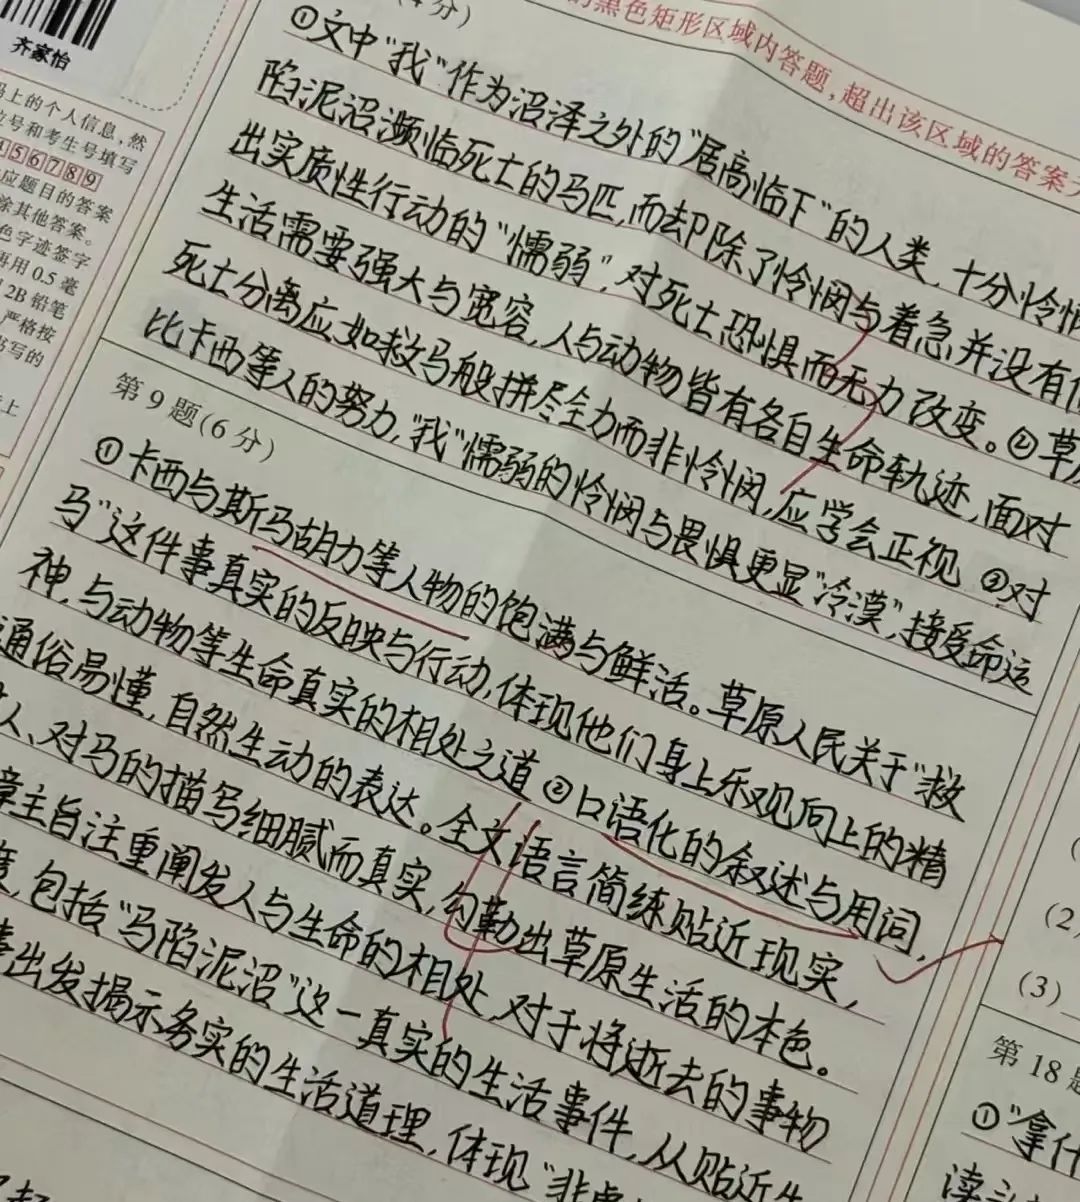 齐家怡
码上的个人信息,然
号和考生号填写
5 6 7 8 9
应题目的答案
涂其他答案。
色字迹签字
再用0.5毫
2B铅笔
严格按
书写的
上
(4分)
黑色矩形区域内答题,超出该区域的答案
①文中"我"作为沼泽之外的"居高临下"的人类,十分怜悯
陷泥沼濒临死亡的马匹,而却除了怜悯与着急,并没有做
出实质性行动的"懦弱",对死亡恐惧而无力改变。②草原
生活需要强大与宽容,人与动物皆有各自生命轨迹,面对
死亡分离应如救马般拼尽全力而非怜悯,应学会正视 ③对
比卡西等人的努力,"我"懦弱的怜悯与畏惧更显"冷漠",接受命运
第9题(6分)
①卡西与斯马胡力等人物的饱满与鲜活。草原人民关于"救
马"这件事真实的反映与行动,体现他们身上乐观向上的精
神,与动物等生命真实的相处之道 ②口语化的叙述与用词,
通俗易懂,自然生动的表达。全文语言简练贴近现实,
人、对马的描写细腻而真实,勾勒出草原生活的本色。
章主旨注重阐发人与生命的相处,对于将逝去的事物
度,包括"马陷泥沼"这一真实的生活事件,从贴近生
出发揭示务实的生活道理,体现"非虚
(2)
(3)
第18题
①"拿什
读